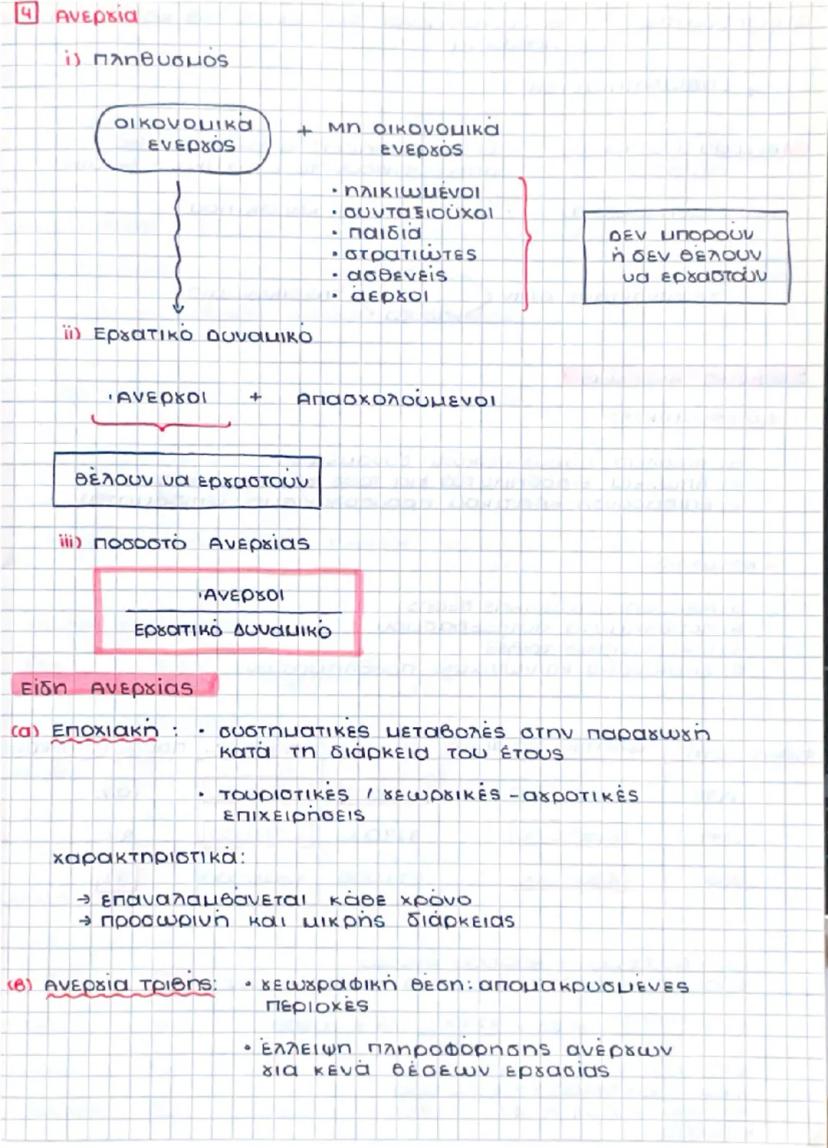 4 Ανεργία
i) Πληθυσμός
οικονομικά + μη οικονομικά
ενεργός ενεργός
• ηλικιωμένοι
• συνταξιούχοι
• παιδιά
• στρατιώτες
• ασθενείς
• άεργοι
Δεν μπορούν
ή δεν θέλουν
να εργαστούν
ii) Εργατικό Δυναμικό
Άνεργοι + Απασχολούμενοι
θέλουν να εργαστούν
iii) Ποσοστό Ανεργίας
Άνεργοι
Εργατικό Δυναμικό
Είδη Ανεργίας
(α) Εποχιακή : • συστηματικές μεταβολές στην παραγωγή
κατά τη διάρκεια του έτους
• τουριστικές / γεωργικές - αγροτικές
επιχειρήσεις
χαρακτηριστικά:
→ επαναλαμβάνεται κάθε χρόνο
→ προσωρινή και μικρής διάρκειας
(β) Ανεργία τριβής: • γεωγραφική θέση: απομακρυσμένες
περιοχές
• έλλειψη πληροφόρησης ανέργων
για κενά θέσεων εργασίας